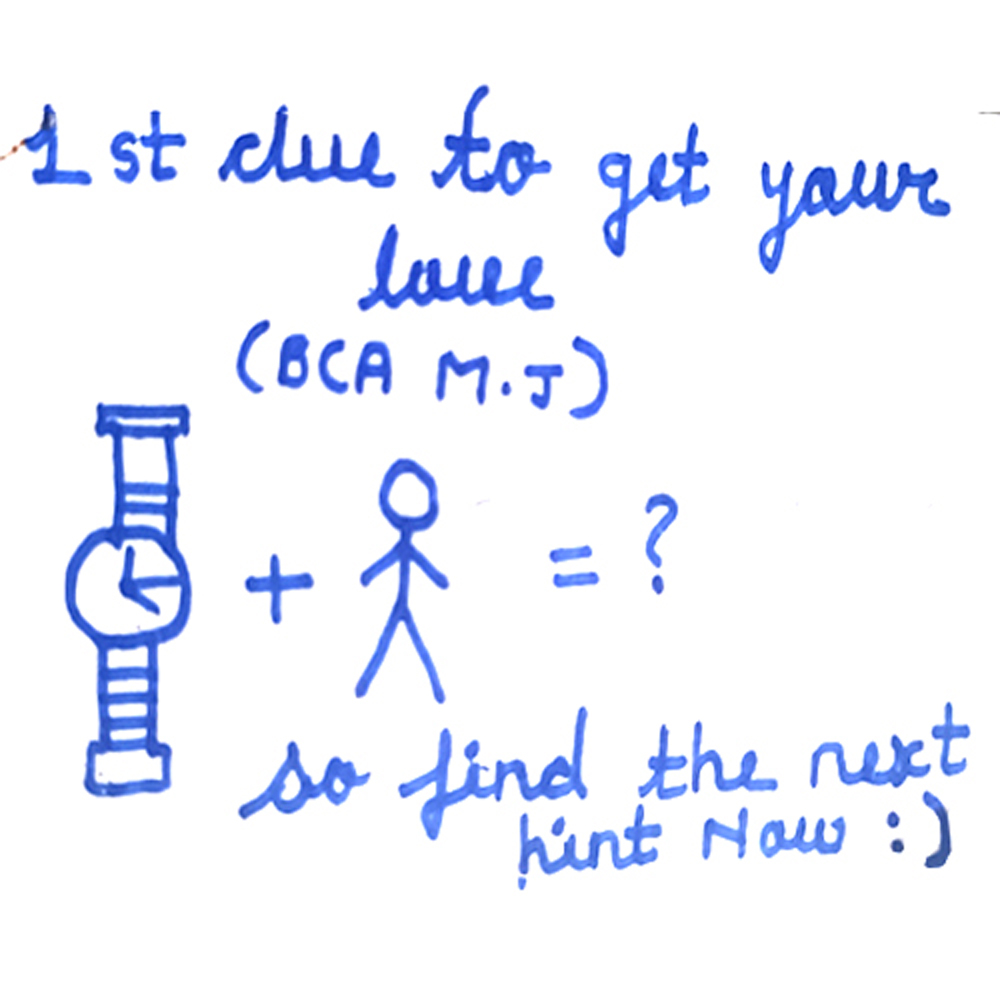 1st clue to get your
love
(BCA M.J)
+ = ?
so find the next
hint Now :)